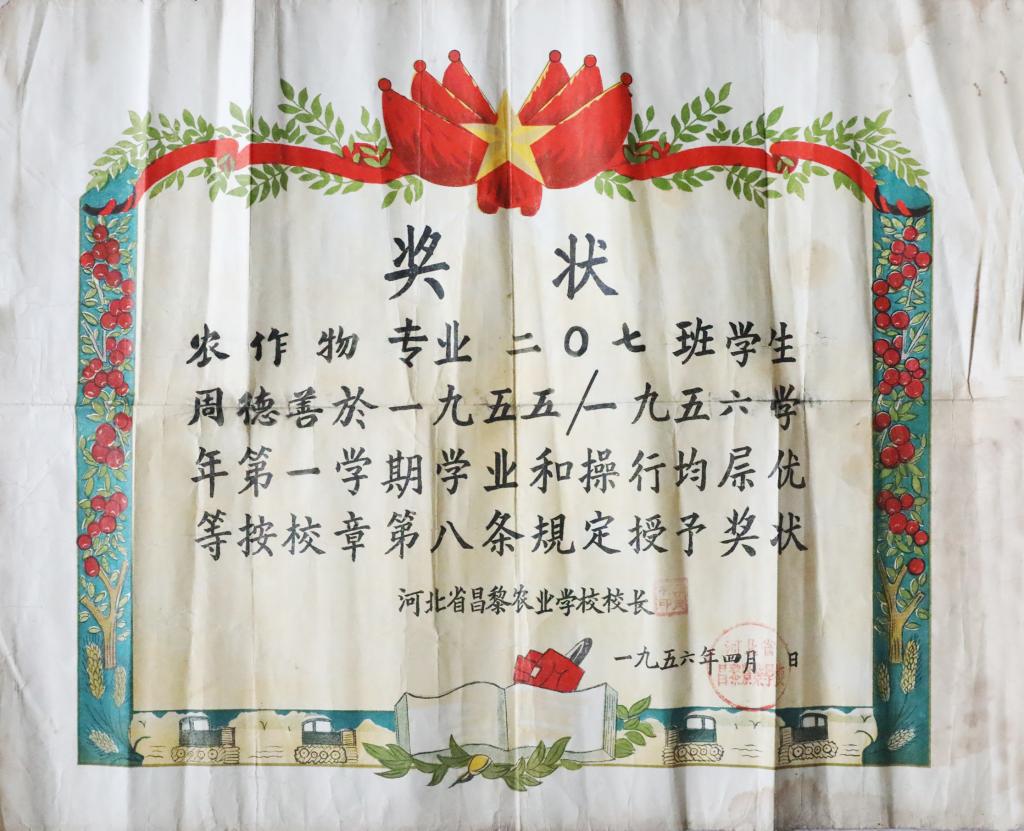 奖状
农作物专业二〇七班学生
周德善於一九五五/一九五六学
年第一学期学业和操行均屌优
等按校章第八条規定授予奖状
河北省昌黎农业学校校长
一九五六年四月 日
河北省
昌黎农业学校